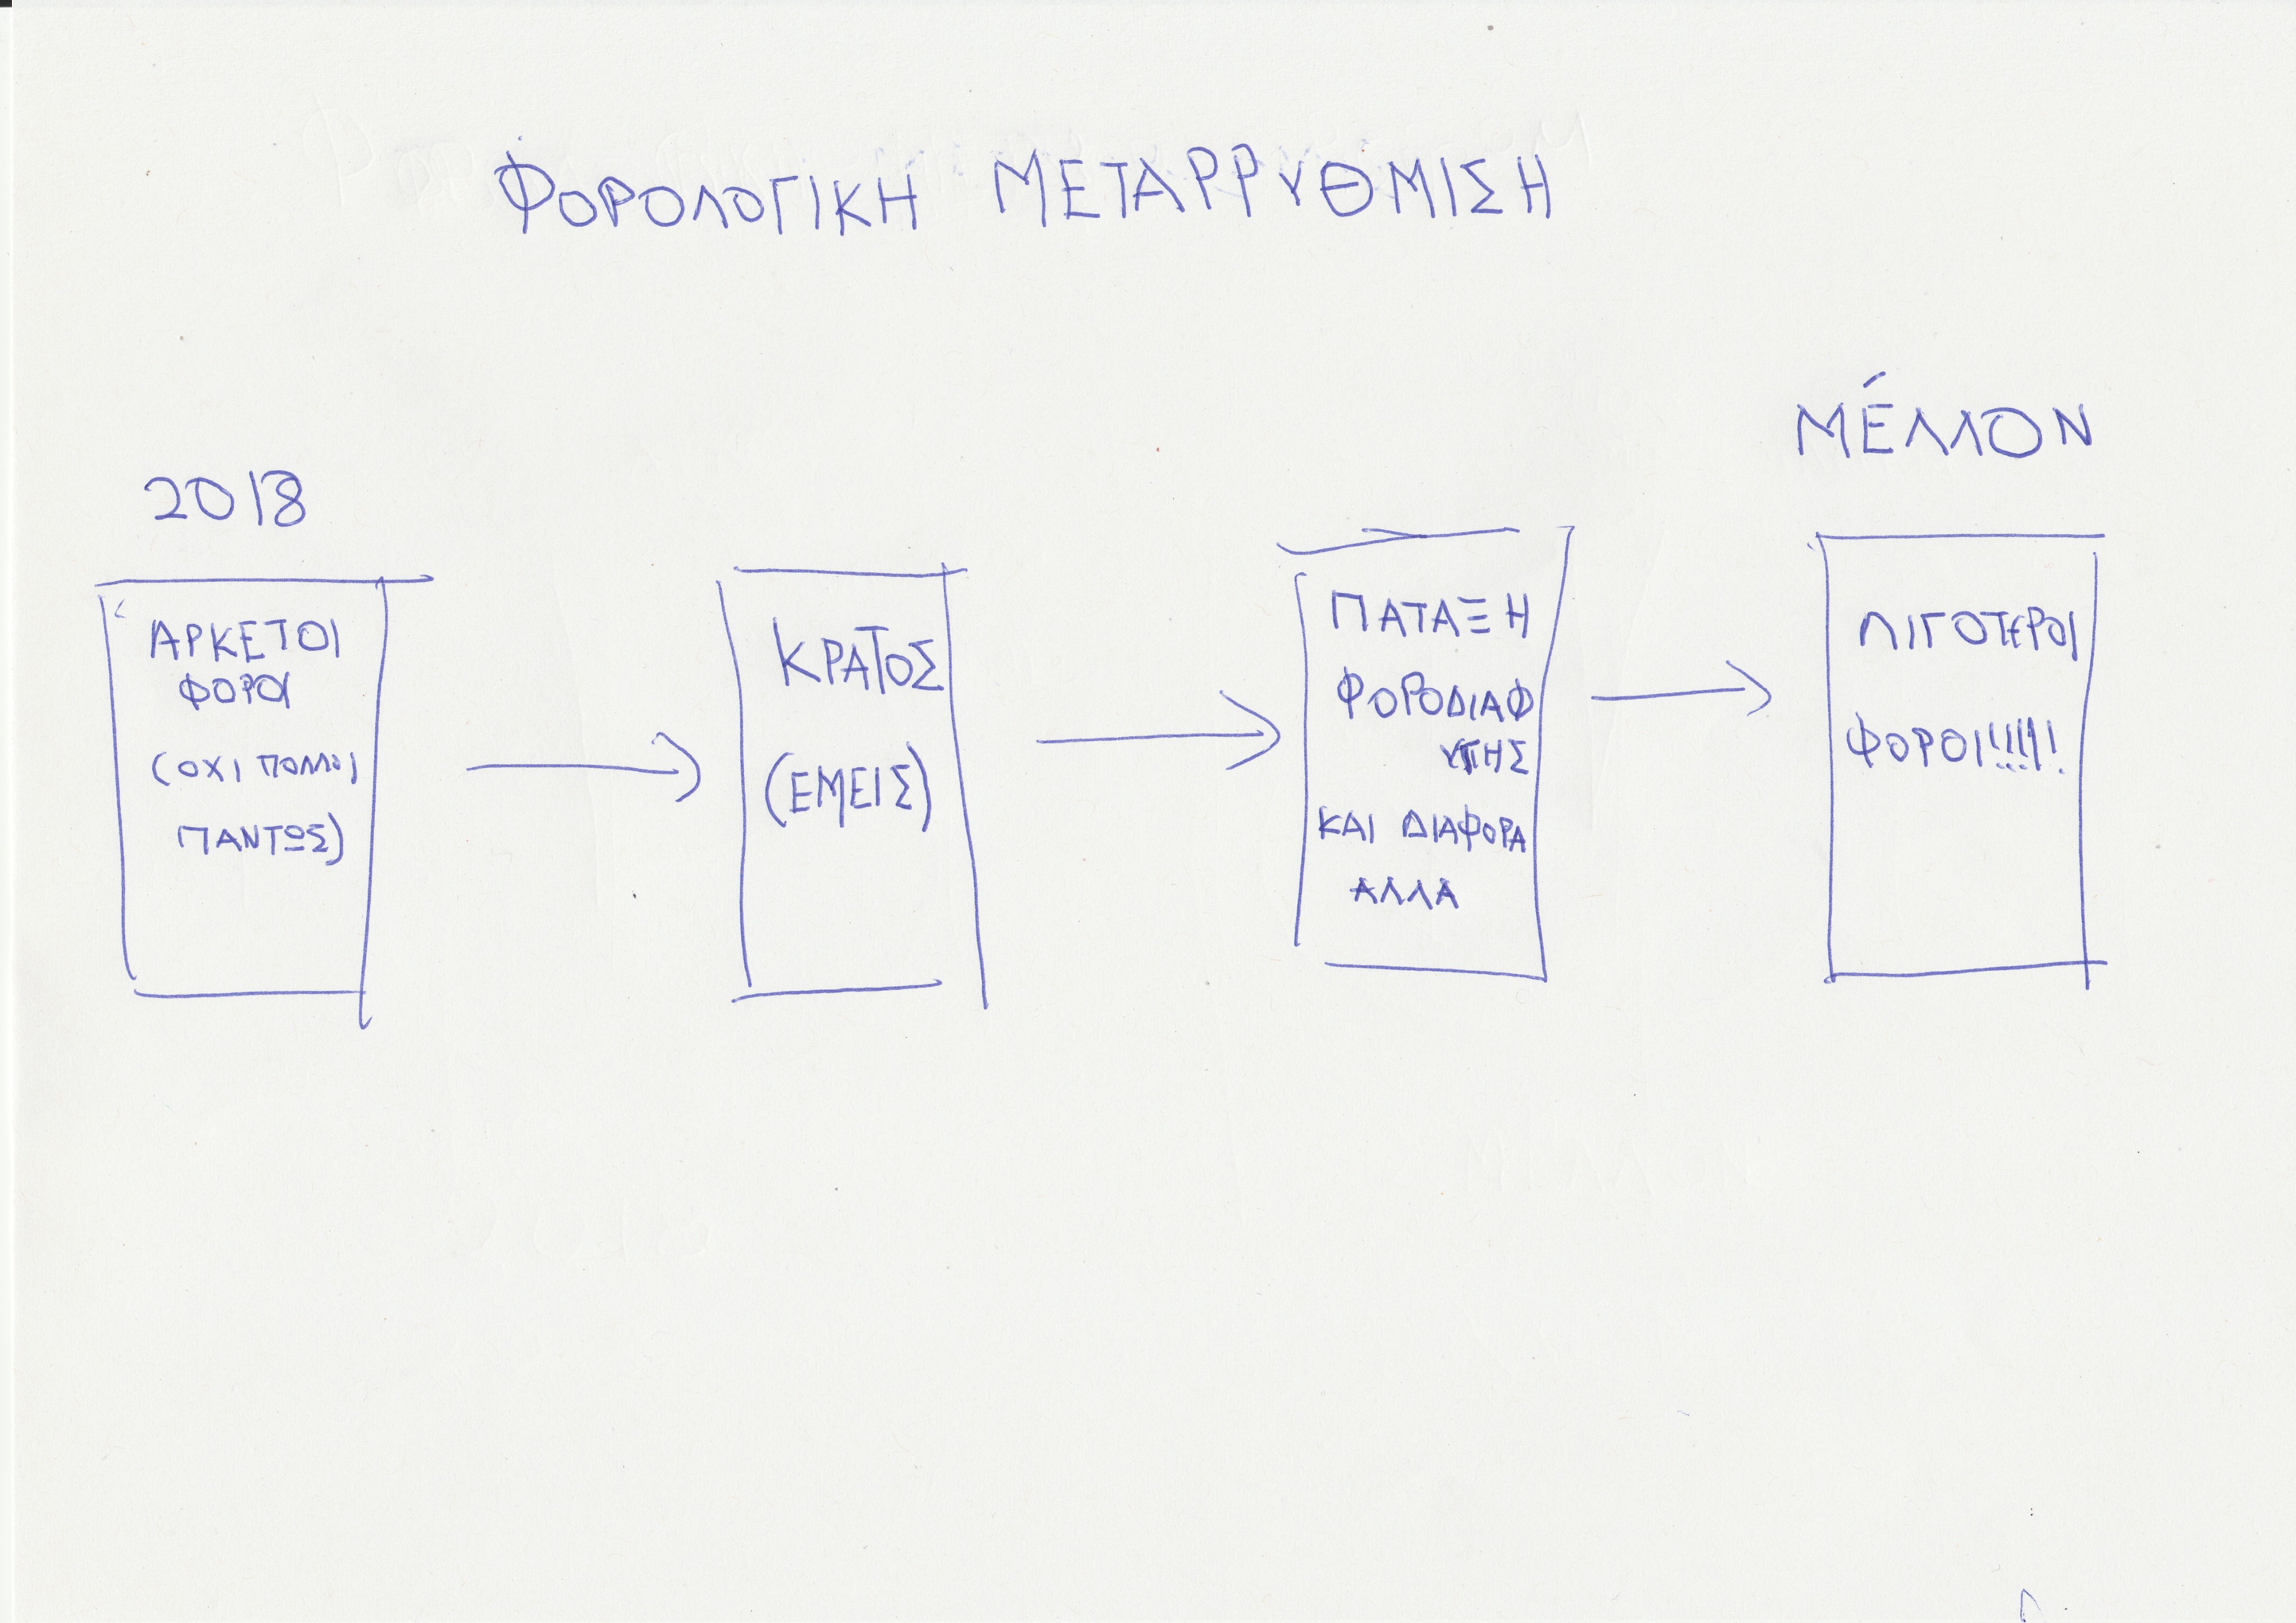 ΦΟΡΟΛΟΓΙΚΗ ΜΕΤΑΡΡΥΘΜΙΣΗ
2018
ΑΡΚΕΤΟΙ
ΦΟΡΟΙ
(ΟΧΙ ΠΟΛΛΟΙ
ΠΑΝΤΩΣ)
ΚΡΑΤΟΣ
(ΕΜΕΙΣ)
ΠΑΤΑΞΗ
ΦΟΡΟΔΙΑΦ
ΥΓΗΣ
ΚΑΙ ΔΙΑΦΟΡΑ
ΑΛΛΑ
ΜΈΛΛΟΝ
ΛΙΓΟΤΕΡΟΙ
ΦΟΡΟΙ!!!!!